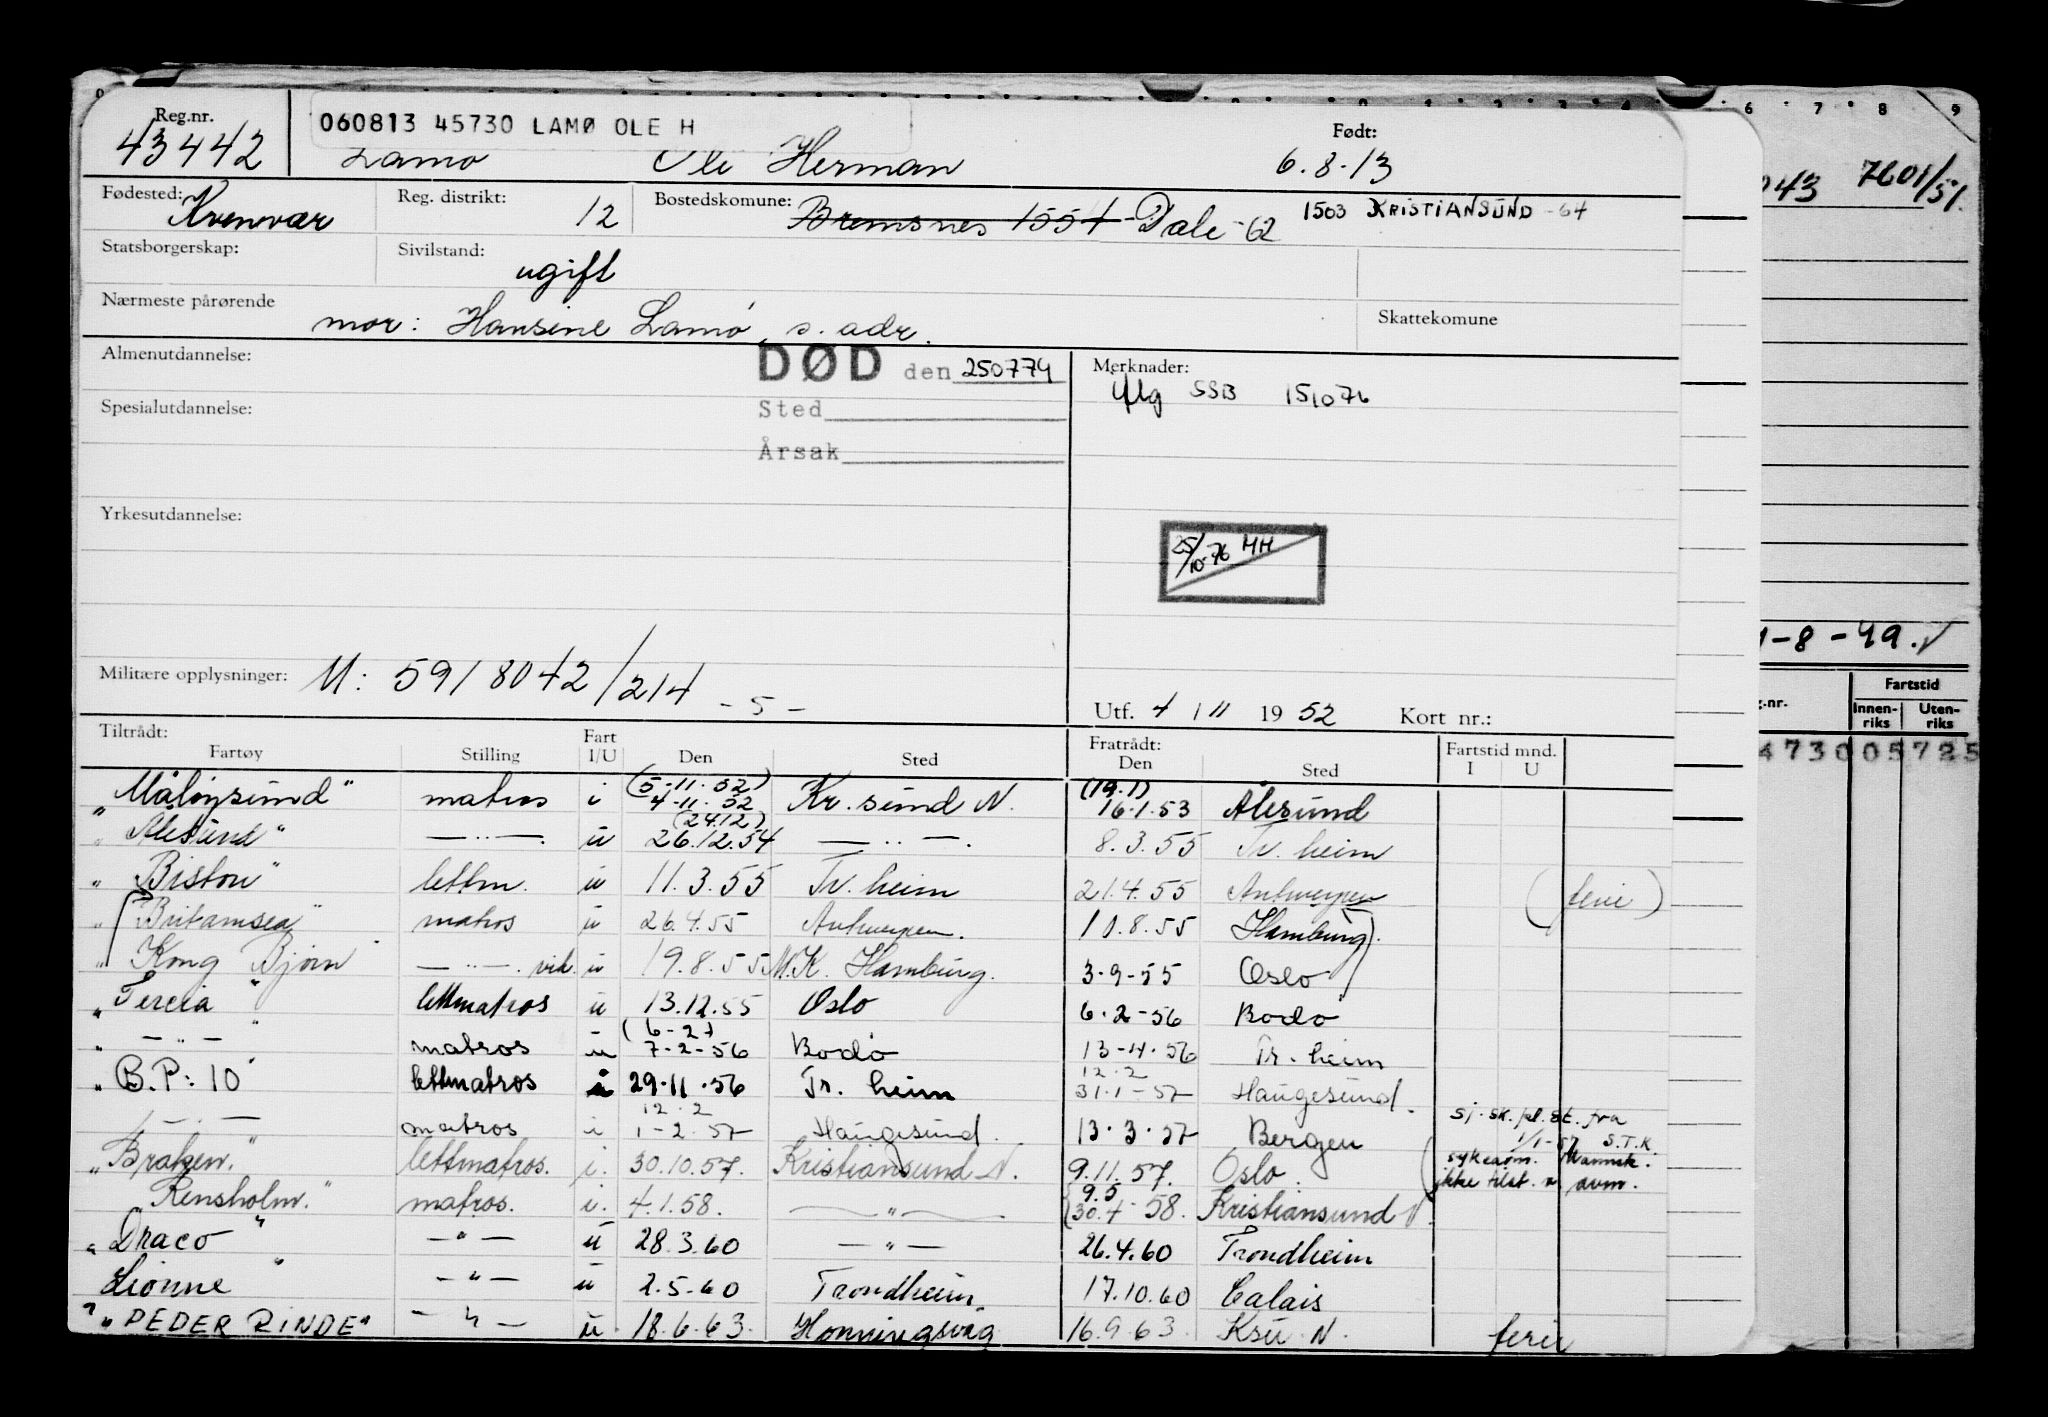 Reg.nr.
43442
060813 45730 LAMØ OLE H
Født:
Lamø Ole Herman 6.8.13
043 7601/51.
Fødested: Kvenvær
Reg. distrikt: 12
Bostedskomune: Bremsnes 1554 Dale -62 1503 KRISTIANSUND -64
Statsborgerskap:
Sivilstand: ugift
Nærmeste pårørende mor: Hansine Lamø, s. adr.
Skattekomune
Almenutdannelse:
DØD den 250774
Merknader:
iflg SSB 151076
Spesialutdannelse:
Sted
Årsak
Yrkesutdannelse:
25/10-76 HH
-8-49.
Militære opplysninger: M: 591 8042/214 -5-
Utf. 4 / 11 1952 Kort nr.:
Tiltrådt:
Fartøy Stilling Fart I/U Den Sted
Fratrådt:
Den Sted Fartstid mnd. I U
g.nr. Fartstid Innen-riks Uten-riks
473005725
"Måløysund" matros i (5-11-52) 4-11-52 Kr.sund N. (19.1) 16.1.53 Ålesund
"Ålesund" —"— u (24.12) 26.12.54 —"—. 8.3.55 Tr.heim
"Biston" lettm. u 11.3.55 Tr.heim 21.4.55 Antwerpen (ferie)
"Britamsea" matros u 26.4.55 Antwerpen. 10.8.55 Hamburg.
" Kong Bjørn" —"—. vik. u 19.8.55 M.K. Hamburg. 3-9-55 Oslo
"Tercia" lettmatros u 13.12.55 Oslo 6-2-56 Bodø
" —"— " matros u (6-2) 7-2-56 Bodø 13-4-56 Tr.heim
"B.P: 10" lettmatros i 29-11-56 Tr.heim 12.2 31-1-57 Haugesund.
—"— matros i 12.2 1-2-57 Haugesund. 13.3.57 Bergen
sj.sk. pl.st. fra 1/1-57 S.T.K.
"Braken." lettmatros. i. 30.10.57. Kristiansund N. 9.11.57. Oslo.
"Rensholm." matros. i. 4.1.58. —"— 9.5 30.4-58. Kristiansund N.
"Draco" —"— u 28.3.60 —"— 26.4.60 Trondheim
Lionne " —"— u 2.5-60 Trondheim 17.10.60 Calais
"PEDER RINDE" —"— u 18.6.63. Honningsvåg 16.9.63. Ksu. N. ferie